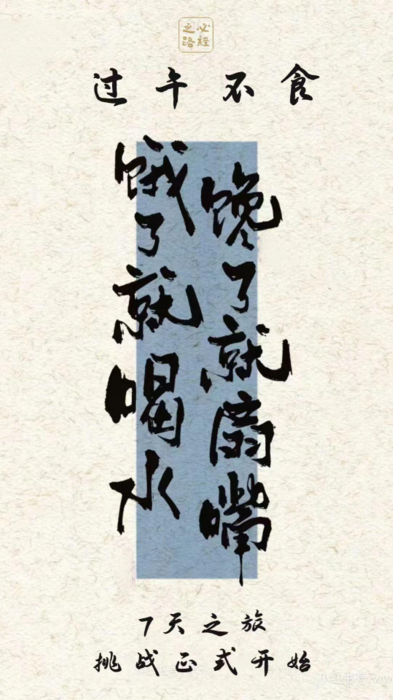 必经
之路
过午不食
馋了就扇嘴
饿了就喝水
7天之旅
挑战正式开始